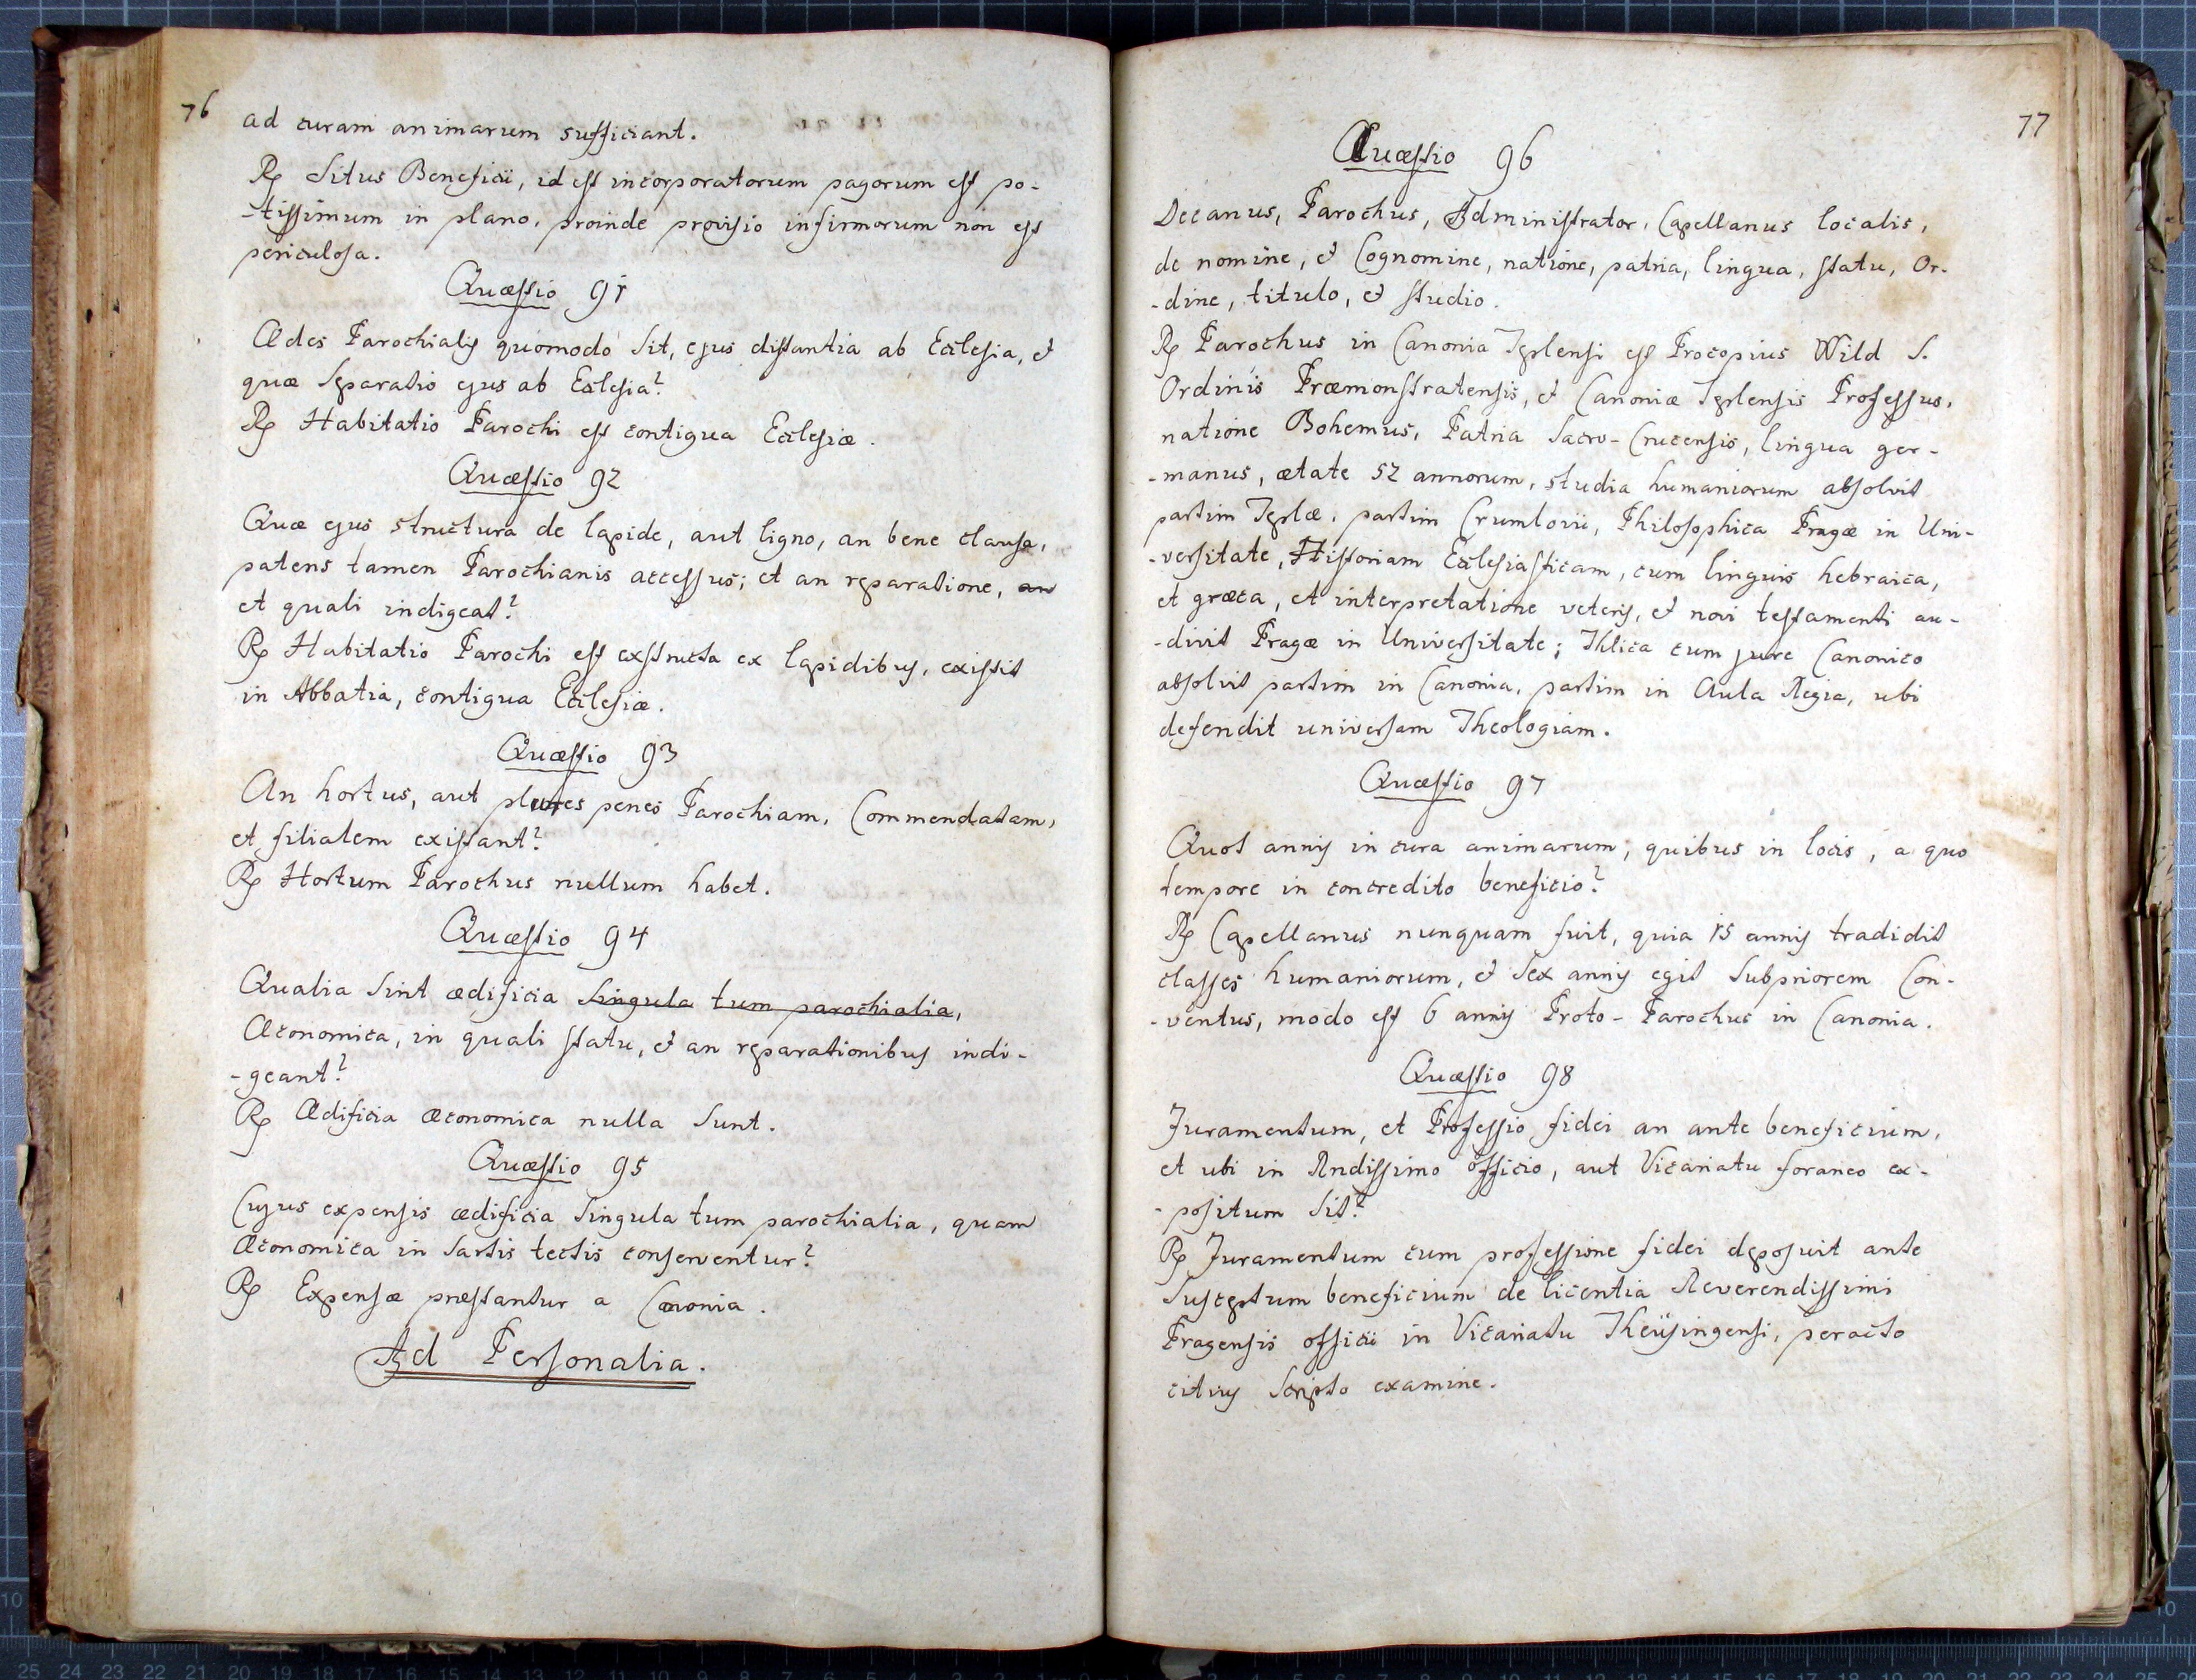 76
ad curam animarum sufficiant.
R Situs Beneficii, id est incorporatorum pagorum est po-
-tissimum in plano, proinde provisio infirmorum non est
periculosa.
Quæstio 91
Ædes Parochialis quomodo sit, ejus distantia ab Ecclesia, et
quæ separatio ejus ab Ecclesia?
R Habitatio Parochi est contigua Ecclesiæ.
Quæstio 92
Quæ ejus structura de lapide, aut ligno, an bene clausa,
patens tamen Parochianis accessus; et an reparatione, an
et quali indigeat?
R Habitatio Parochi est exstructa ex lapidibus, existit
in Abbatia, contigua Ecclesiæ.
Quæstio 93
An hortus, aut plures penes Parochiam, Commendatam,
et filialem existant?
R Hortum Parochus nullum habet.
Quæstio 94
Qualia sint ædificia singula tum parochialia,
Œconomica, in quali statu, et an reparationibus indi-
-geant?
R Ædificia œconomica nulla sunt.
Quæstio 95
Cujus expensis ædificia singula tum parochialia, quam
Œconomica in sartis tectis conserventur?
R Expensæ præstantur a Canonia.
Ad Personalia.
77
Quæstio 96
Decanus, Parochus, Administrator, Capellanus localis,
de nomine, et Cognomine, natione, patria, lingua, statu, Or-
-dine, titulo, et studio.
R Parochus in Canonia Teplensi est Procopius Wild S.
Ordinis Præmonstratensis, et Canoniæ Teplensis Professus,
natione Bohemus, Patria Sacro-Crucensis, lingua ger-
-manus, ætate 52 annorum, studia humaniorum absolvit
partim Teplæ, partim Crumlovii, Philosophica Pragæ in Uni-
-versitate, Historiam Ecclesiasticam, cum linguis hebraica,
et græca, et interpretatione veteris, et novi testamenti au-
-divit Pragæ in Universitate; Thlica cum jure Canonico
absolvit partim in Canonia, partim in Aula Regia, ubi
defendit universam Theologiam.
Quæstio 97
Quot annis in cura animarum, quibus in locis, a quo
tempore in concredito beneficio?
R Capellanus nunquam fuit, quia 15 annis tradidit
classes humaniorum, et sex annis egit Subpriorem Con-
-ventus, modo est 6 annis Proto-Parochus in Canonia.
Quæstio 98
Juramentum, et Professio fidei an ante beneficium,
et ubi in Rndissimo officio, aut Vicariatu foraneo ex-
-positum sit?
R Juramentum cum professione fidei deposuit ante
susceptum beneficium de licentia Reverendissimi
Pragensis officii in Vicariatu Theüsingensi, peracto
citius scripto examine.